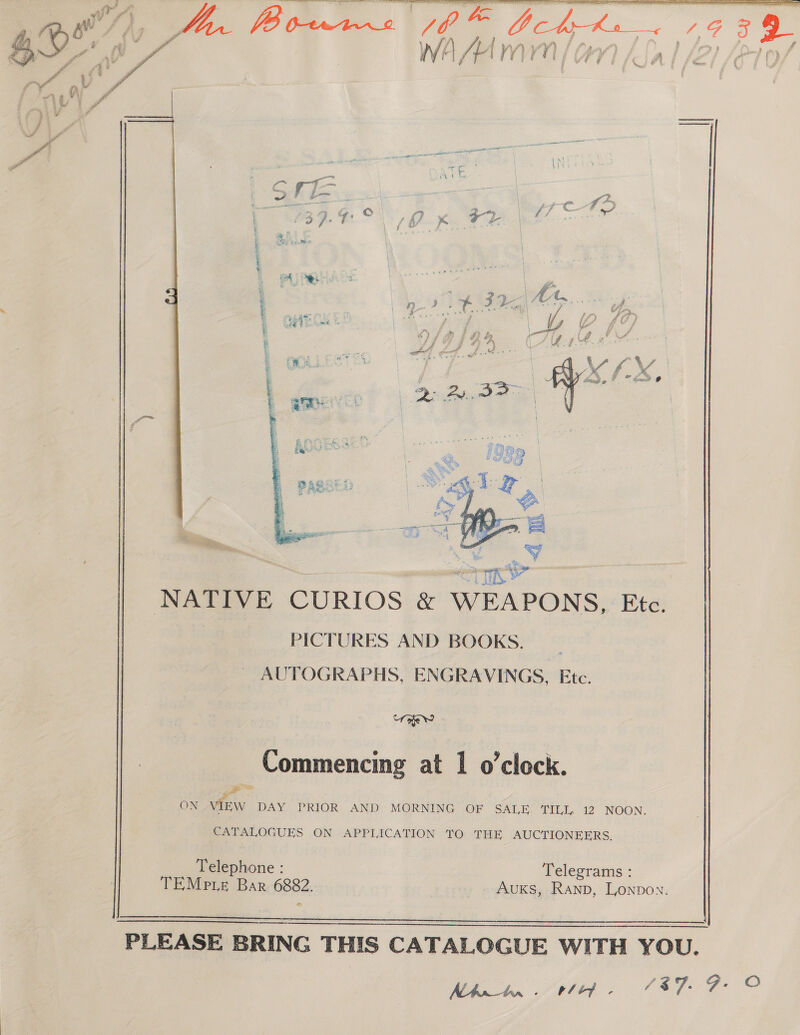 Mr Bourne 18th October 1932
WA/HMM/CM/Sal/21/810/
DATE INITIALS
STE
137.9.0 18 x 32 HCB
SALE
PURCHASE
3
CHECKED
2/2/33
COLLECTED
RECEIVED 2. 2. 33
ACCESSED
MAR 1933
PASSED
NATIVE CURIOS & WEAPONS, Etc.
PICTURES AND BOOKS.
AUTOGRAPHS, ENGRAVINGS, Etc.
Commencing at 1 o'clock.
ON VIEW DAY PRIOR AND MORNING OF SALE TILL 12 NOON.
CATALOGUES ON APPLICATION TO THE AUCTIONEERS.
Telephone : Telegrams :
TEMPLE BAR 6882. AUKS, RAND, LONDON.
PLEASE BRING THIS CATALOGUE WITH YOU.
137. 9. 0